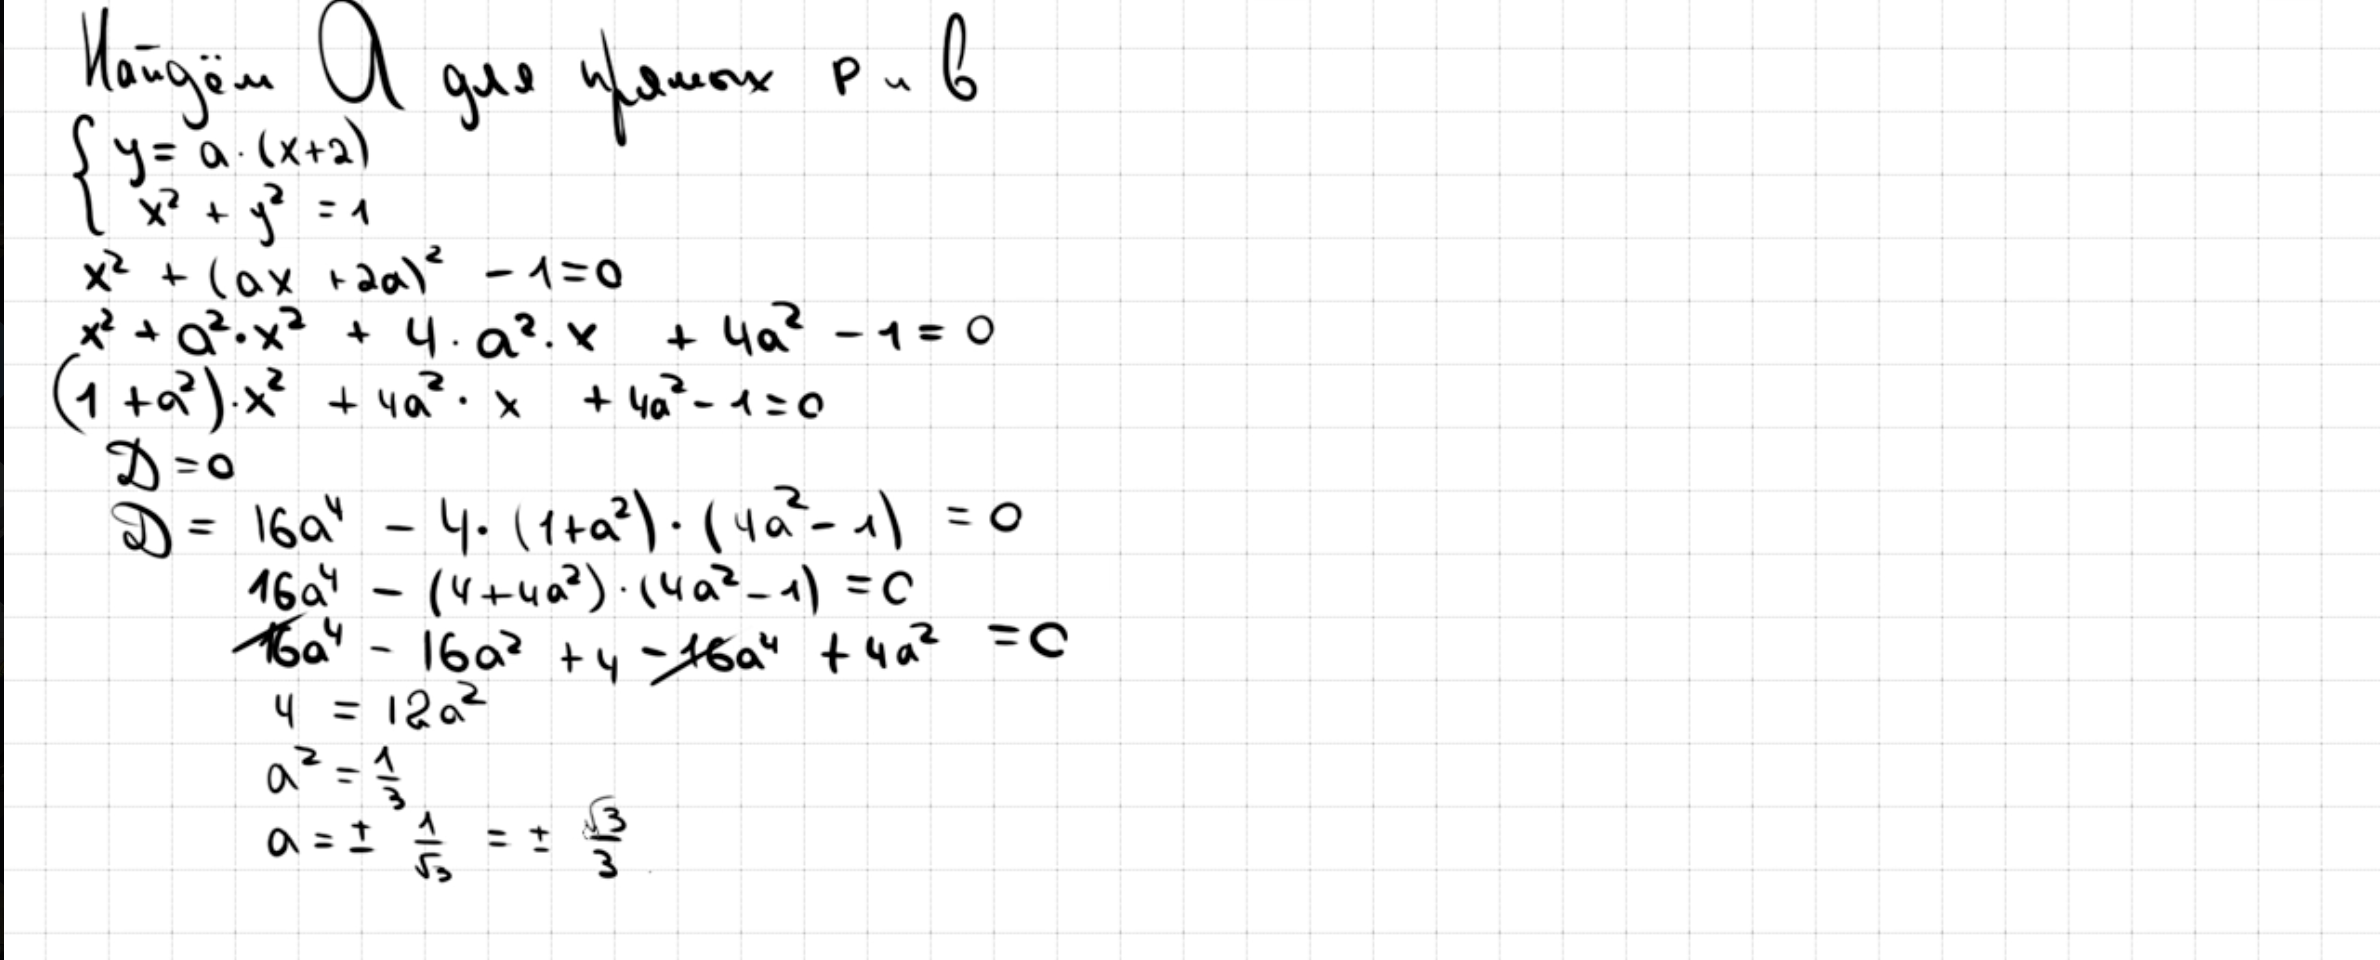 Найдём a для прямых p и b
{ y = a·(x+2)
x² + y² = 1
x² + (ax + 2a)² - 1 = 0
x² + a²·x² + 4·a²·x + 4a² - 1 = 0
(1 + a²)·x² + 4a²·x + 4a² - 1 = 0
D = 0
D = 16a⁴ - 4·(1+a²)·(4a² - 1) = 0
16a⁴ - (4+4a²)·(4a² - 1) = 0
16a⁴ - 16a² + 4 - 16a⁴ + 4a² = 0
4 = 12a²
a² = 1/3
a = ± 1/√3 = ± √3/3